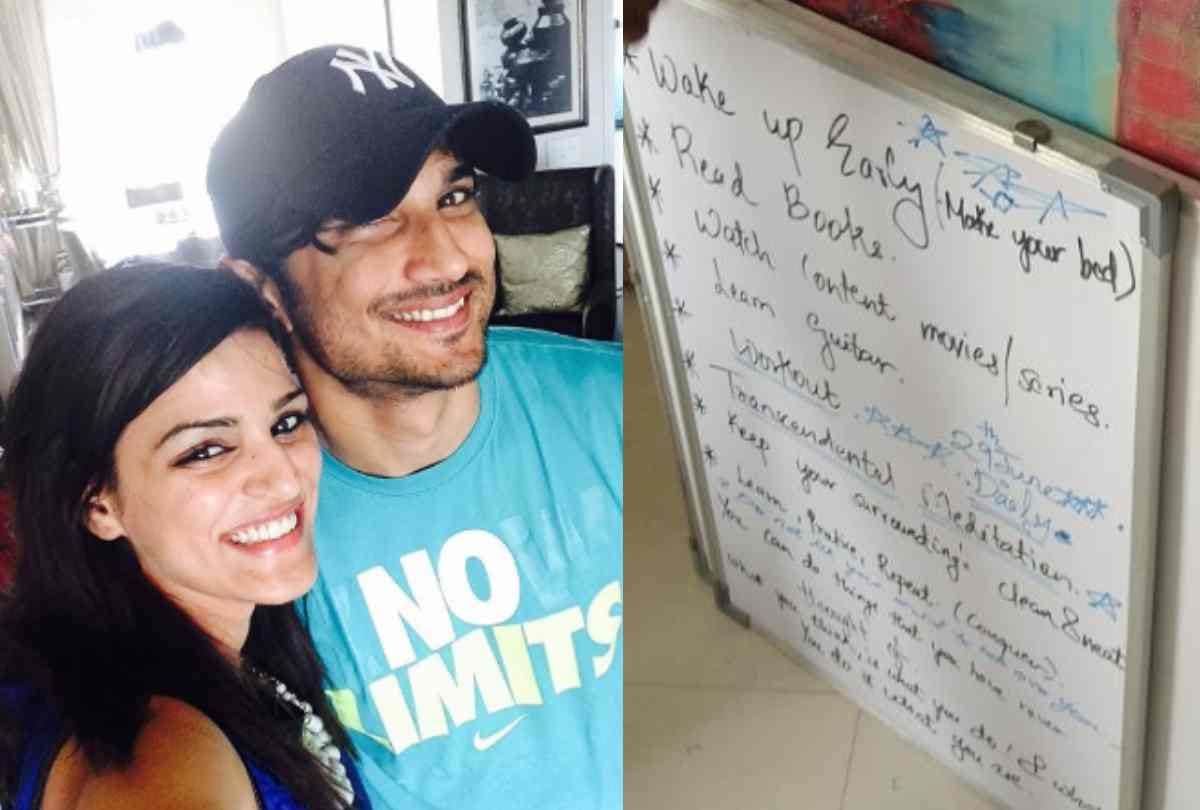 NY
NO
LIMITS
* Wake up Early (Make your bed)
* Read Books.
* Watch Content movies/series.
* Learn Guitar.
* Workout.
* Transcendental Meditation.
29th June
Daily.
* Keep your surrounding's clean & neat
* Learn, Repeat, (Conquer)
You can do things that you have never
thought of
you think is what you do! & what
You do is what you see